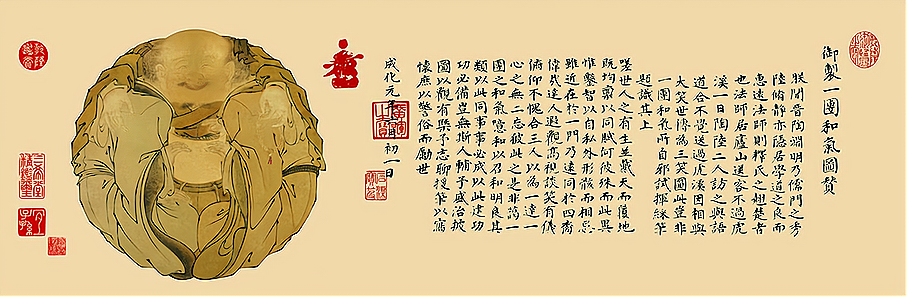 御製一團和氣圖贊
朕聞晉陶淵明乃儒門之秀
陸脩靜亦隱居學道之良而
惠遠法師則釋氏之翹楚者
也法師居廬山送客不過虎
溪一日陶陸二人訪之與語
道合不覺送過虎溪因相與
大笑世傳為三笑圖此豈非
一團和氣所自邪試揮綵筆
題識其上
嗟世人之有生並戴天而履地
既均禀以同賦何彼殊而此異
惟鑿智以自私外形骸而相忌
雖近在於一門乃遠同於四裔
偉哉達人遐觀高視談笑有儀
俯仰不愧合三人以為一達一
心之無二忘彼此之是非藹一
團之和氣噫和以召和明良其
類以此同事事必成以此建功
功必備豈無斯人輔予盛治披
圖以觀有槩予志聊援筆以寫
懷庶以警俗而勵世
成化元年初一日